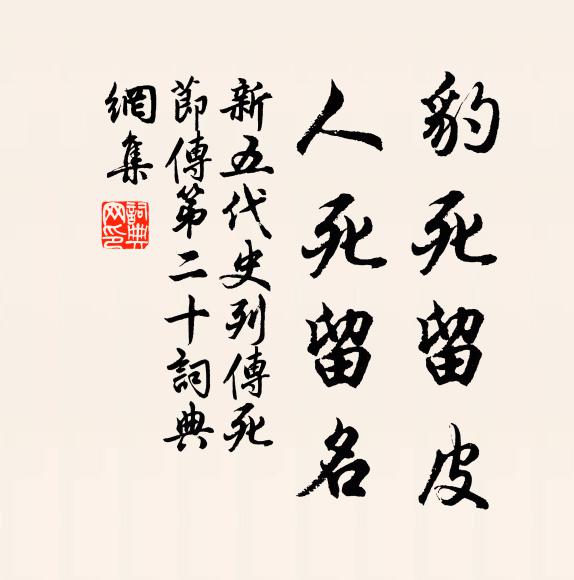 豹死留皮
人死留名
新五代史列傳死
節傳第二十詞典
網集
詞典網印